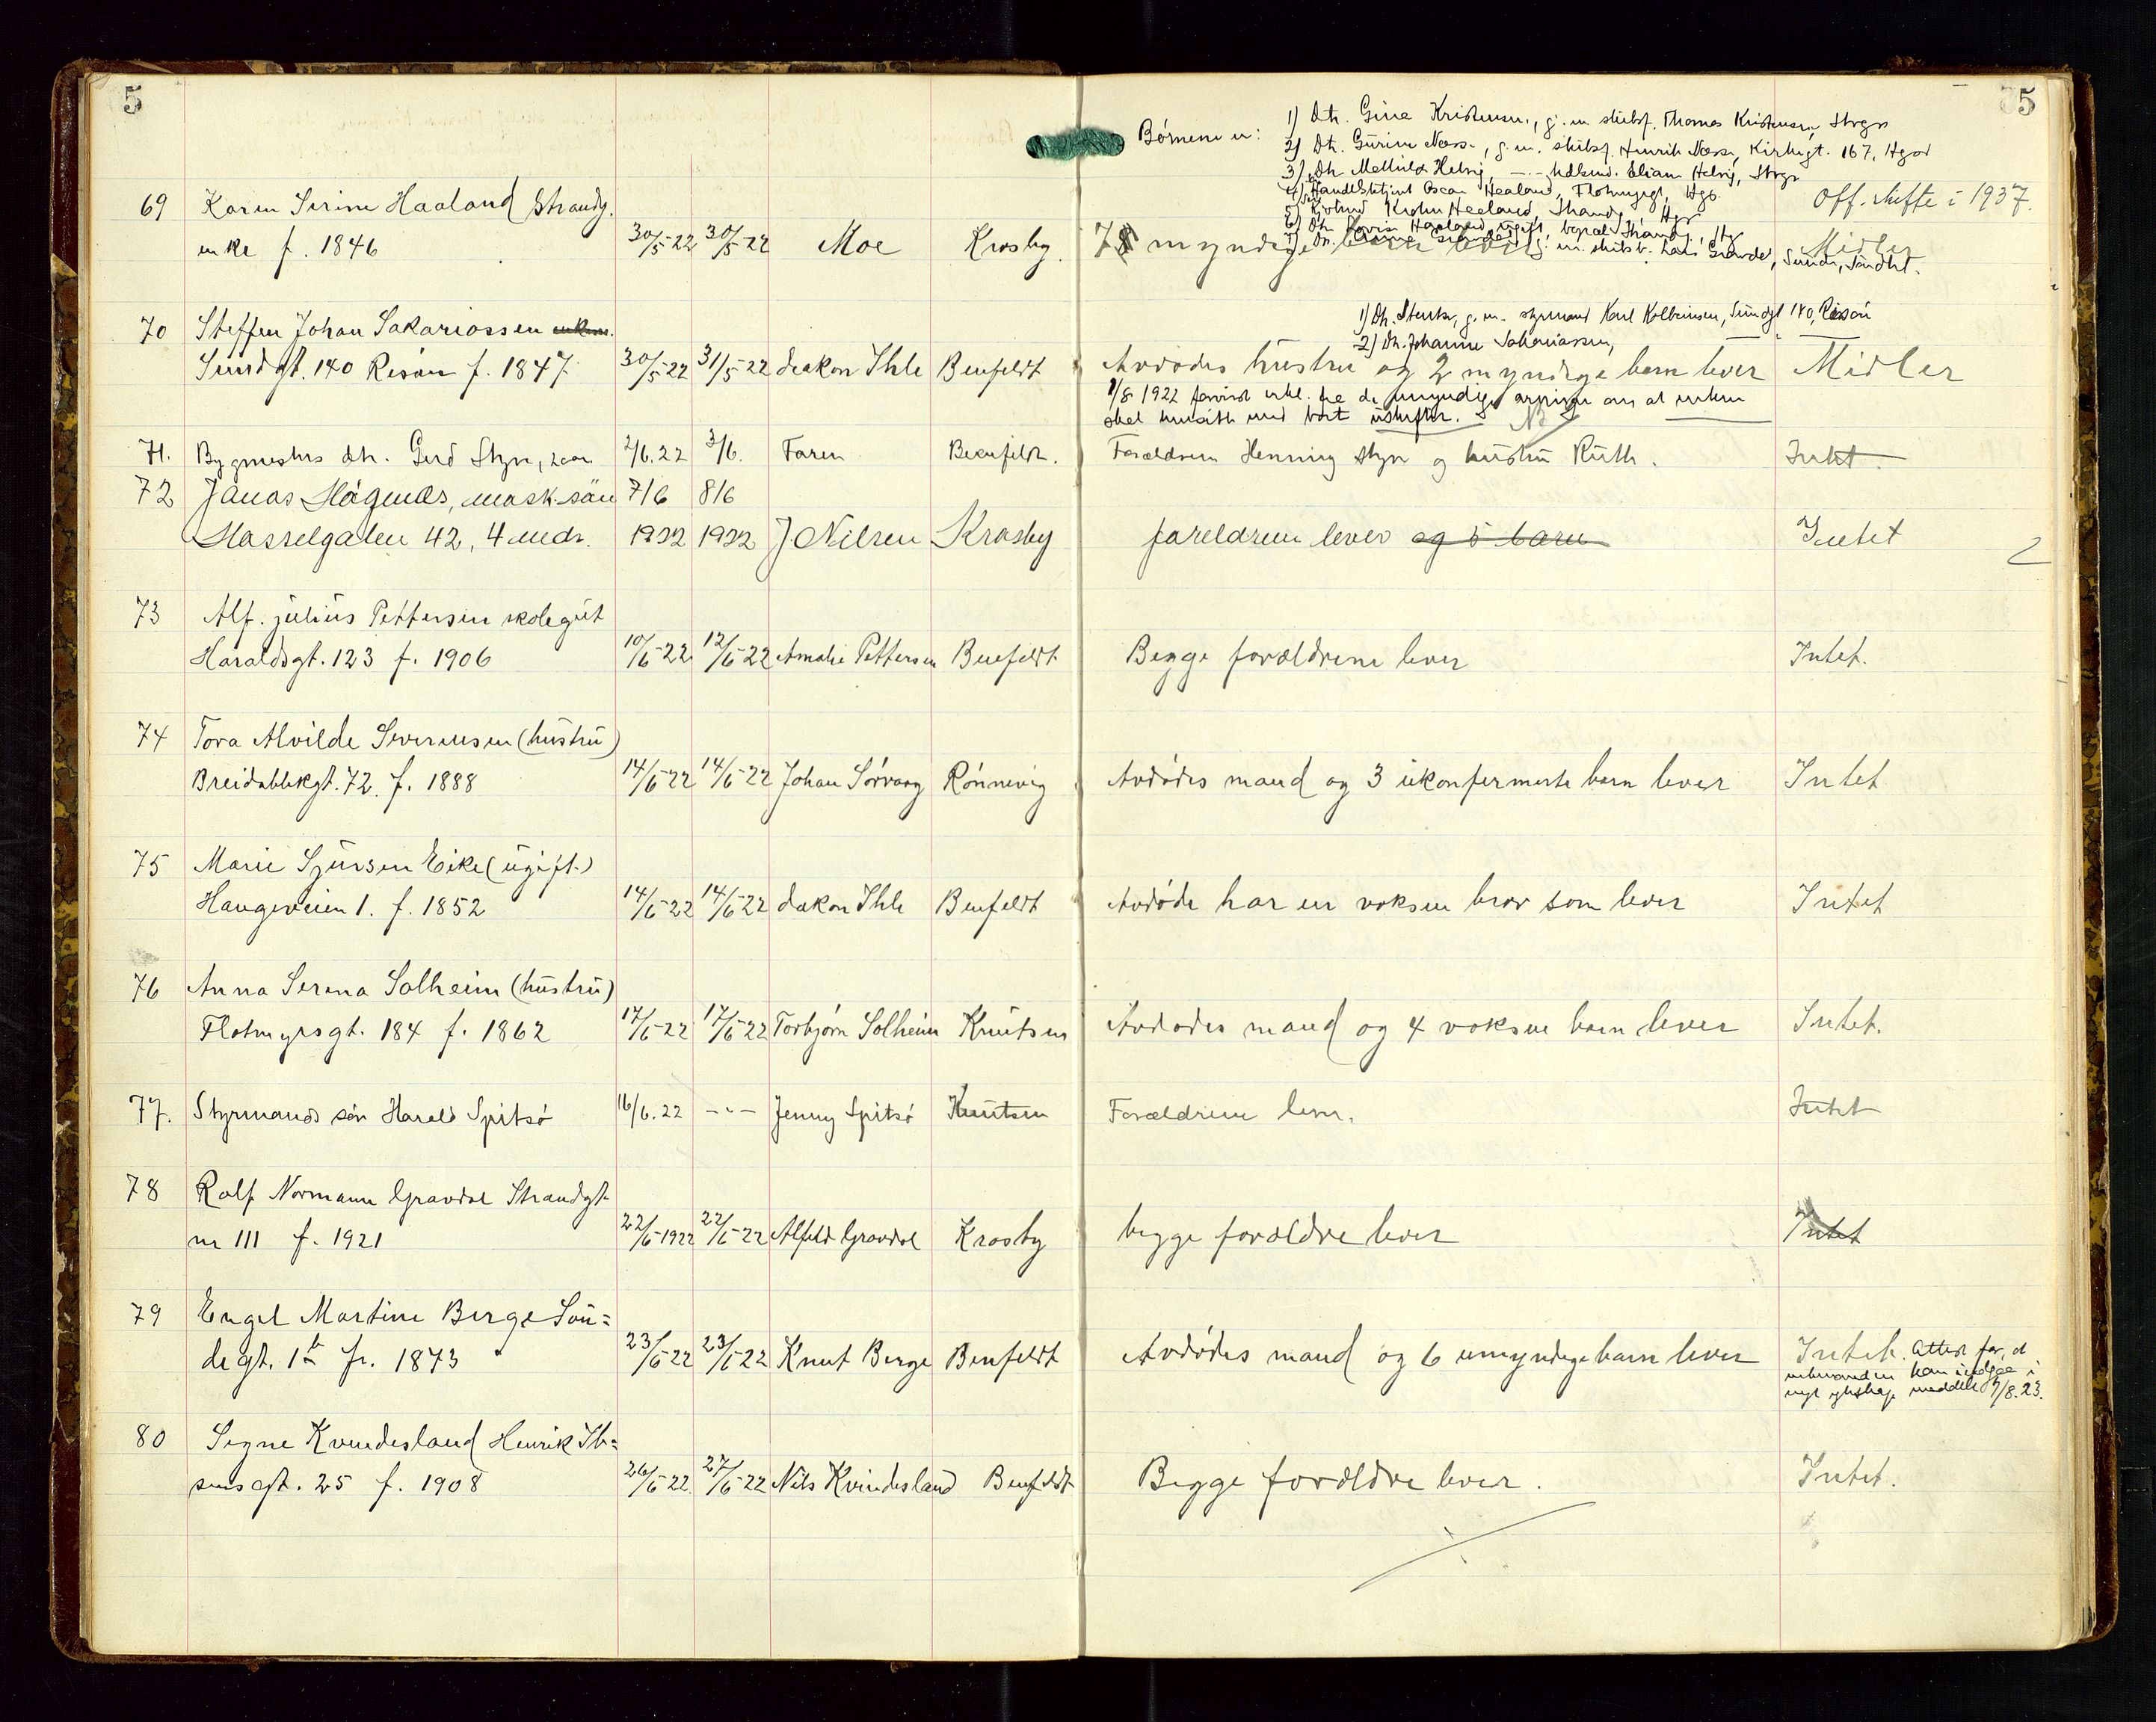 5
5
Børnene er:
1) Dtr. Gina Kristensen, g. m. skibsf. Thomas Kristensen, Hvgsn
2) Dtr. Gurine Næss, g. m. skibsf. Henrik Næss, Kirkegt. 167, Hgsd
3) Dtr. Mathilde Helvig, —„— Elias Helvig, Hvgs
4) Handelsbetjent Oscar Haaland, Flotmyrgt, Hgs.
5) Krohn Haaland, Strandg, Hgs
6) Dtr. Haaland, ugift, Strandg., Hg
7) Dtr. g. m. skibsf. Lars
Off. skifte i 1937.
69 Karen Serine Haaland Strandg.
enke f. 1846 30/5-22 30/5-22 Moe Krosby 7 myndige barn lever Midler
1) Dtr. g. m. styrmand Karl Kolbeinsen, Sundgt 140, Risør
2) Dtr. Johanne Sakariassen,
70 Steffen Johan Sakariassen enkem.
Sundgt. 140 Risøen f. 1847 30/5-22 31/5-22 deakon Ihle Benfeldt Avdødes hustru og 2 myndige barn lever Midler
1/8 1922 fra de myndige arvinger om at enken
skal hensitte med boet uskiftet.
71. Bygmesters dtr. Gerd Styr, 2 aar 2/6.22 3/6. Faren Benfeldt. Forældrene Henning Styr og hustru Ruth. Intet
72 Jonas Høgnes, mask. søn 7/6 8/6
Hasselgaten 42, 4 mdr. 1922 1922 J Nilsen Krosby foreldrene lever og 5 barn Intet
73 Alf. julius Pettersen skolegut
Haraldsgt. 123 f. 1906 10/6-22 12/6-22 Amalie Pettersen Benfeldt Begge forældrene lever Intet.
74 Tora Alvilde Severensen (hustru)
Breidablikgt. 72 f. 1888 14/6-22 14/6-22 Johan Sørvaag Rønnevig Avdødes mand og 3 ukonfermerte barn lever Intet
75 Marie Sjursen Eike (ugift.)
Haugeveien 1. f. 1852 14/6-22 14/6-22 deakon Ihle Benfeldt Avdøde har en voksen bror som lever Intet
76 Anna Serena Solheim (hustru)
Flotmyrsgt. 184 f. 1862 17/6-22 17/6-22 Torbjørn Solheim Knutsen Avdødes mand og 4 voksne barn lever Intet.
77. Styrmands søn Harald Spitsø 16/6.22 —„— Jenny Spitsø Knutsen Forældrene lever. Intet
78 Rolf Normann Gravdal Strandgt.
nr 111 f. 1921 22/6-1922 22/6-22 Alfild Gravdal Krosby begge forældre lever Intet
79 Engel Martine Berge Sun=
degt. 1b f. 1873 23/6-22 23/6-22 Knut Berge Benfeldt Avdødes mand og 6 umyndige barn lever Intet. Attest for, at
enkemanden kan indgaa i
nyt egteskap meddelt 7/8.23.
80 Signe Kvindesland Henrik Ib=
sensgt. 25 f. 1908 26/6-22 27/6-22 Nils Kvindesland Benfeldt Begge forældre lever. Intet.